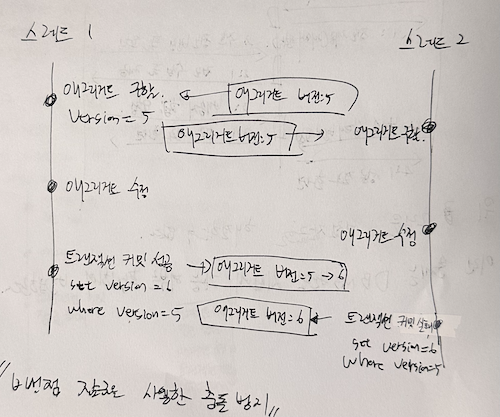 스레드 1
스레드 2
애그리거트 구함.
version = 5
애그리거트 버전:5
애그리거트 버전:5
애그리거트 구함.
애그리거트 수정
애그리거트 수정
트랜잭션 커밋 성공
set version = 6
where version = 5
애그리거트 버전=5 → 6
애그리거트 버전=6
트랜잭션 커밋 실패
set version=6
where version=5
사용한 충돌 방지